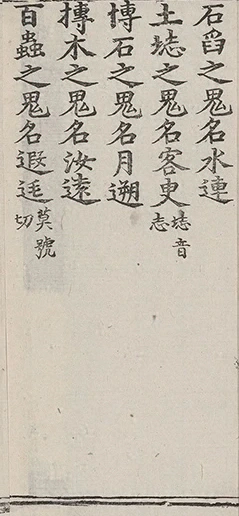 石舀之鬼名水連
土誌之鬼名客叓誌音志
博石之鬼名月遡
摶木之鬼名汝遠
百蟲之鬼名遐迋莫號切